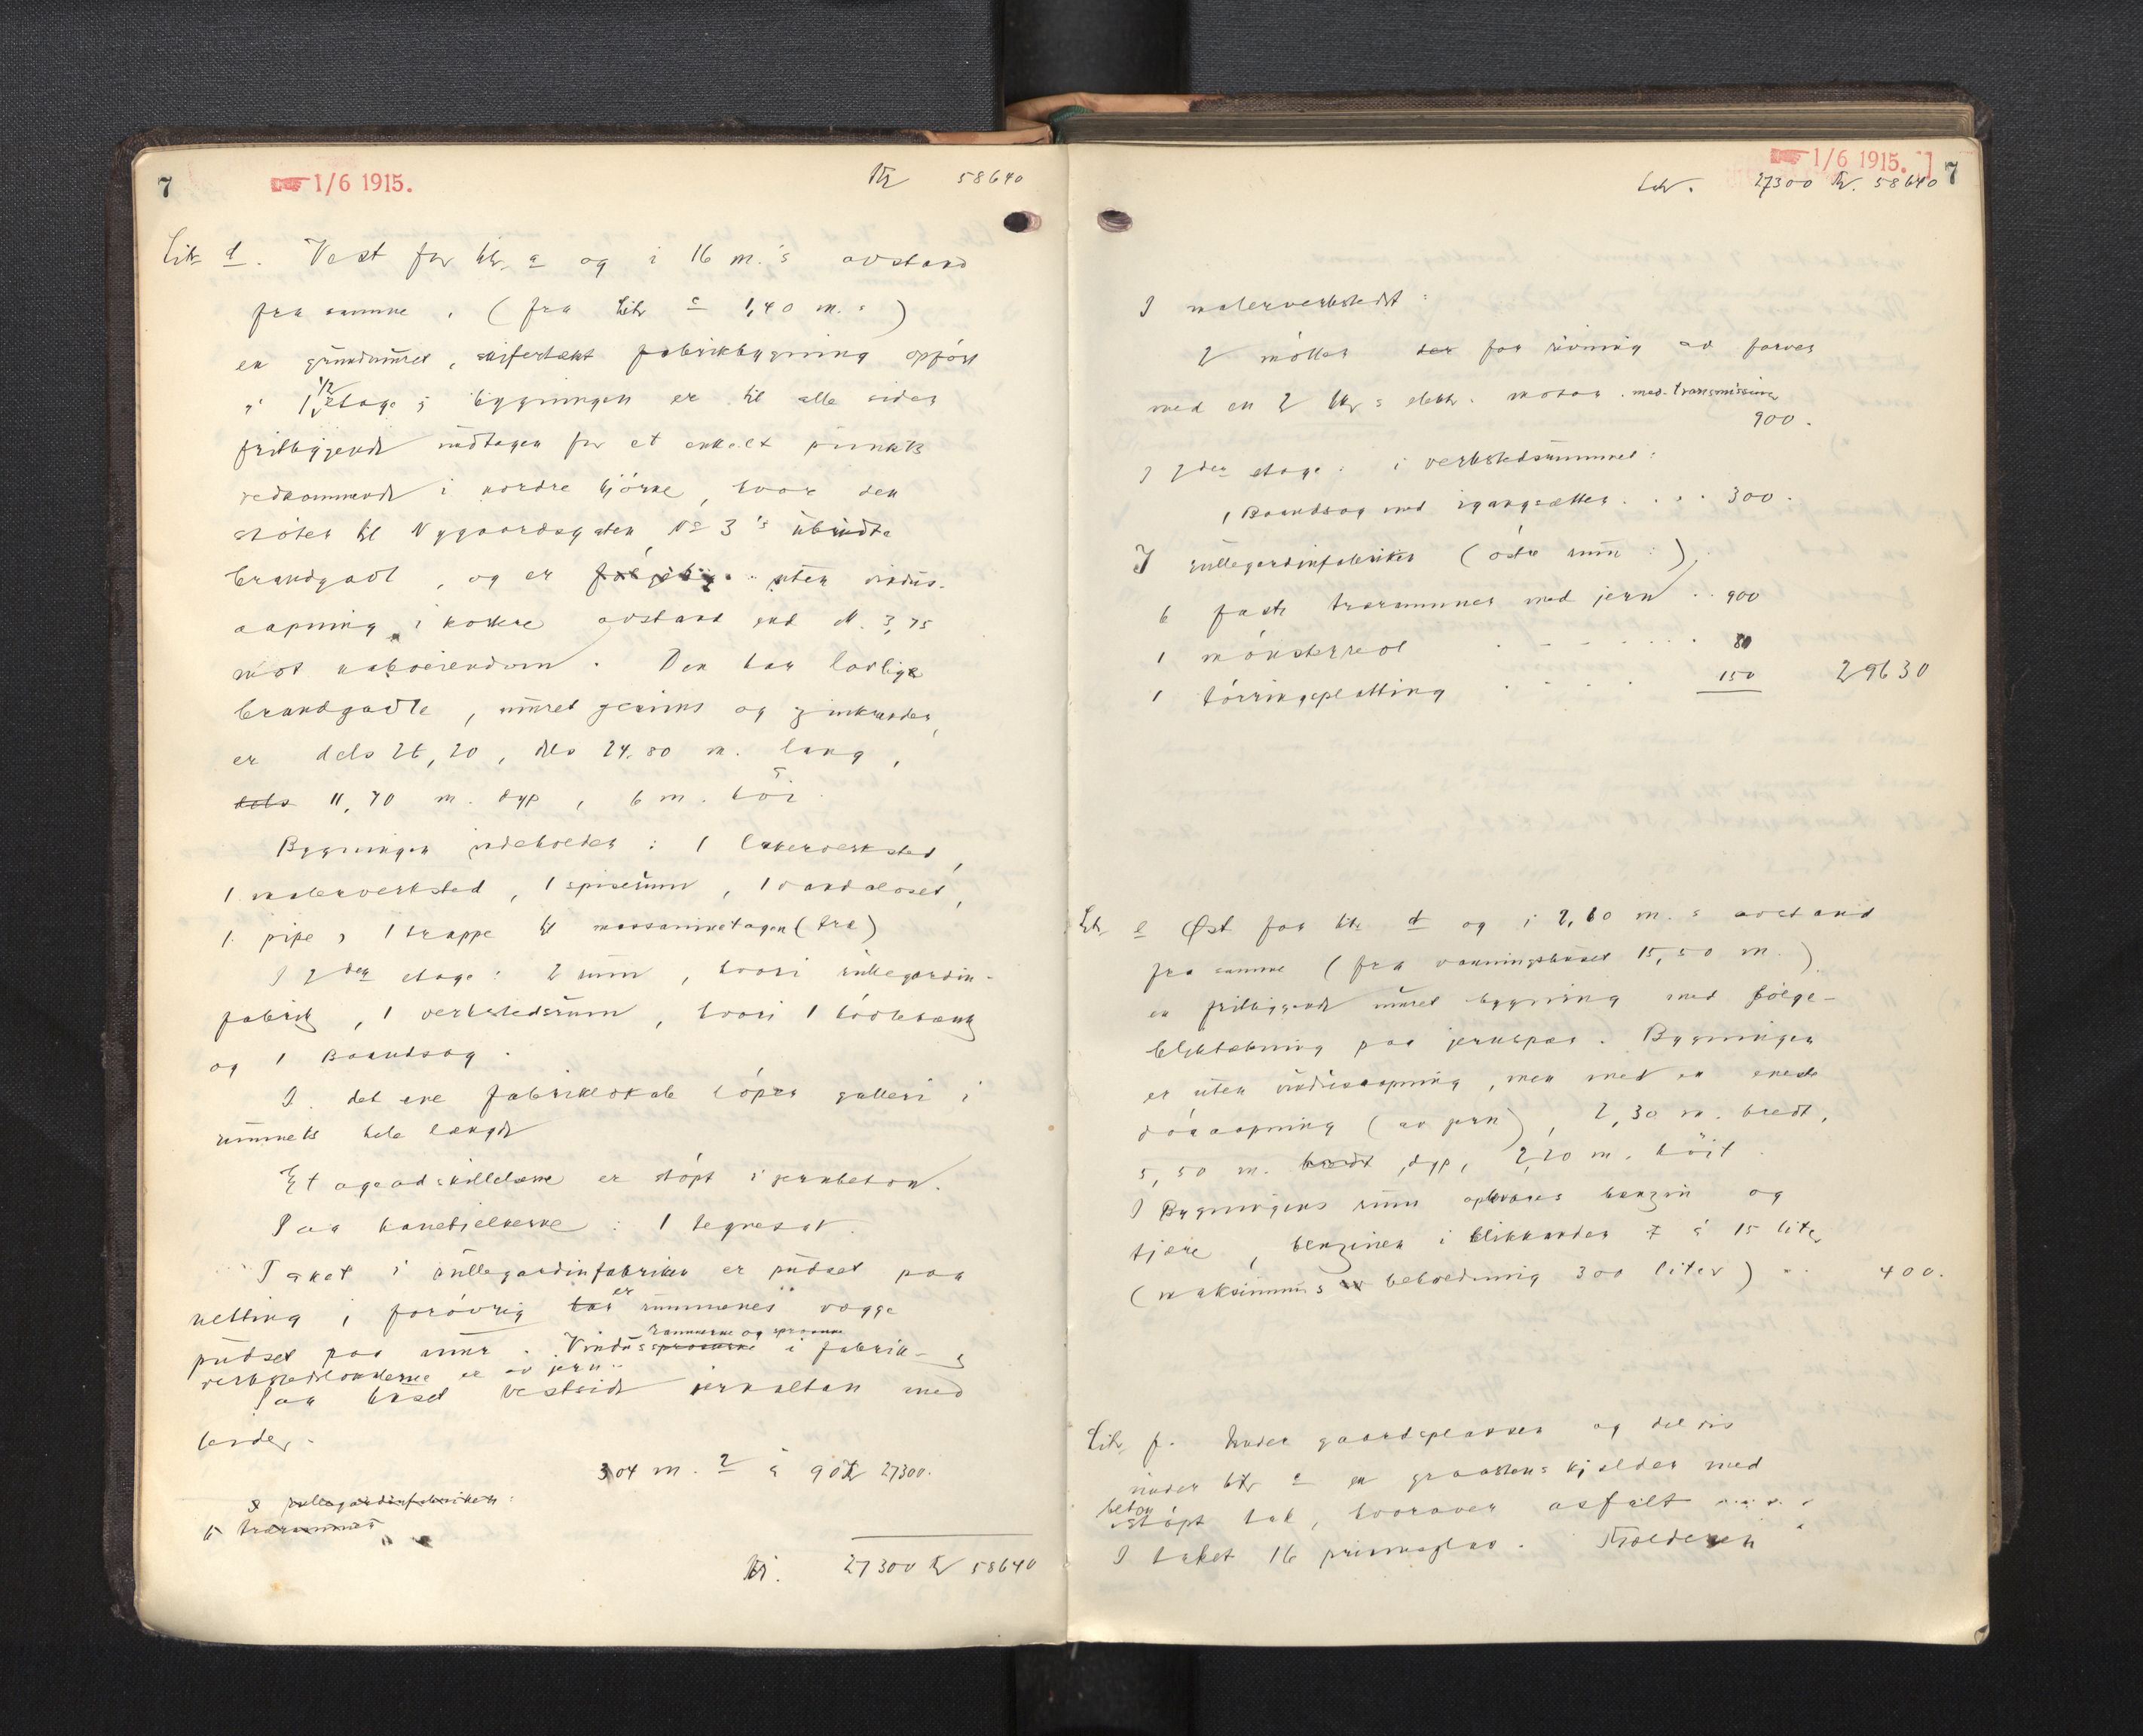 7
1/6 1915.
Kr 58640
Litr d. Vest for litr a og i 16 m.'s avstand
fra samme, (fra litr c 1,40 m.s)
en grundmuret, skifertækt fabrikbygning opført
i 1 1/2 etage; bygningen er til alle sider
fritliggende undtagen for et enkelt punkts
vedkommende i nordre hjørne, hvor den
støter til Nygaardsgaten No 3's ubrudte
brandgavl, og er uten vindus-
aapning i kortere avstand end M. 3,75
mot naboeiendom. Den har lovlige
brandgavle, muret gesims og zinkrender,
er dels 26,20, dels 24.80 m. lang,
dels 11,70 m. dyp, 6 m. høi.
Bygningen indeholder: 1 lakerverksted,
1 malerverksted, 1 spiserum, 1 vandcloset,
1 pipe, 1 trappe til messaninetagen (træ)
I 2den etage: 2 rum, hvori rullegardin-
fabrik, 1 verkstedsrum, hvori 1 høvlebænk
og 1 Baandsag.
I det ene fabriklokale løper galleri i
rummets hele længde
Etageadskillelsene er støpt i jernbeton.
Paa hanebjelkerne: 1 tegnesal.
Taket i rullegardinfabriken er pudset paa
netting, forøvrig har er rummenes vægge
pudset paa mur. Vindussprosserne rammerne og sprosserne i fabrik- &
verkstedlokalerne er av jern.
Paa huset vestside jernaltan med
leider.
304 m.2 à 90 kr 27300.
I rullegardinfabriken:
6 trærammer
Kr. 27300 Kr 58640
1/6 1915.
7
Litr. 27300 Kr. 58640
I malerverkstedet:
2 møller for rivning av farver
med en 2 HK's elektr. motor med transmission
900.
I 2den etage: i verkstedsrummet:
1 Baandsag med igangsætter . . . 300.
I rullegardinfabriken (østre rum:)
6 faste trærammer med jern . . 900
1 mønsterreol . . . . 80
1 tørringsplatting . . . . 150 29630
Litr e Øst for litr d og i 2,60 m.s avstand
fra samme (fra vaaningshuset 15,50 m.)
en fritliggende muret bygning med bølge-
bliktækning paa jernspær. Bygningen
er uten vindusaapning, men med en eneste
døraapning (av jern), 2,30 m. bredt,
5,50 m. bredt, dyp, 2,20 m. høit.
I Bygningens rum opbevares benzin og
tjære, benzinen i blikkander à 15 liter
(maksimums beholdning 300 liter) . . 400.
Litr f. Under gaardsplassen og delvis
under litr c en graastens kjelder med
beton støpt tak, hvorover asfalt
I taket 16 prismaglas. Kjelderen